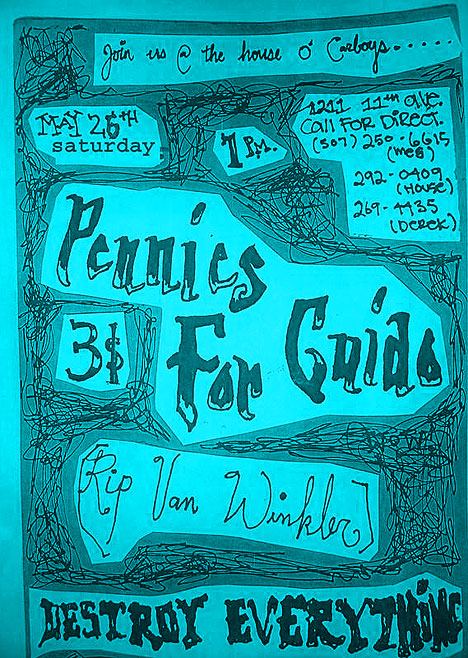 Join us @ the house o' Carboys.....
MAY 26TH
saturday
7 P.M.
1211 11TH AVE.
CALL FOR DIRECT.
(507) 250-6615
(MEG)
292-0409
(HOUSE)
269-4435
(DEREK)
Pennies
For Guido
3$
[Rip Van Winkler]
DESTROY EVERYTHING